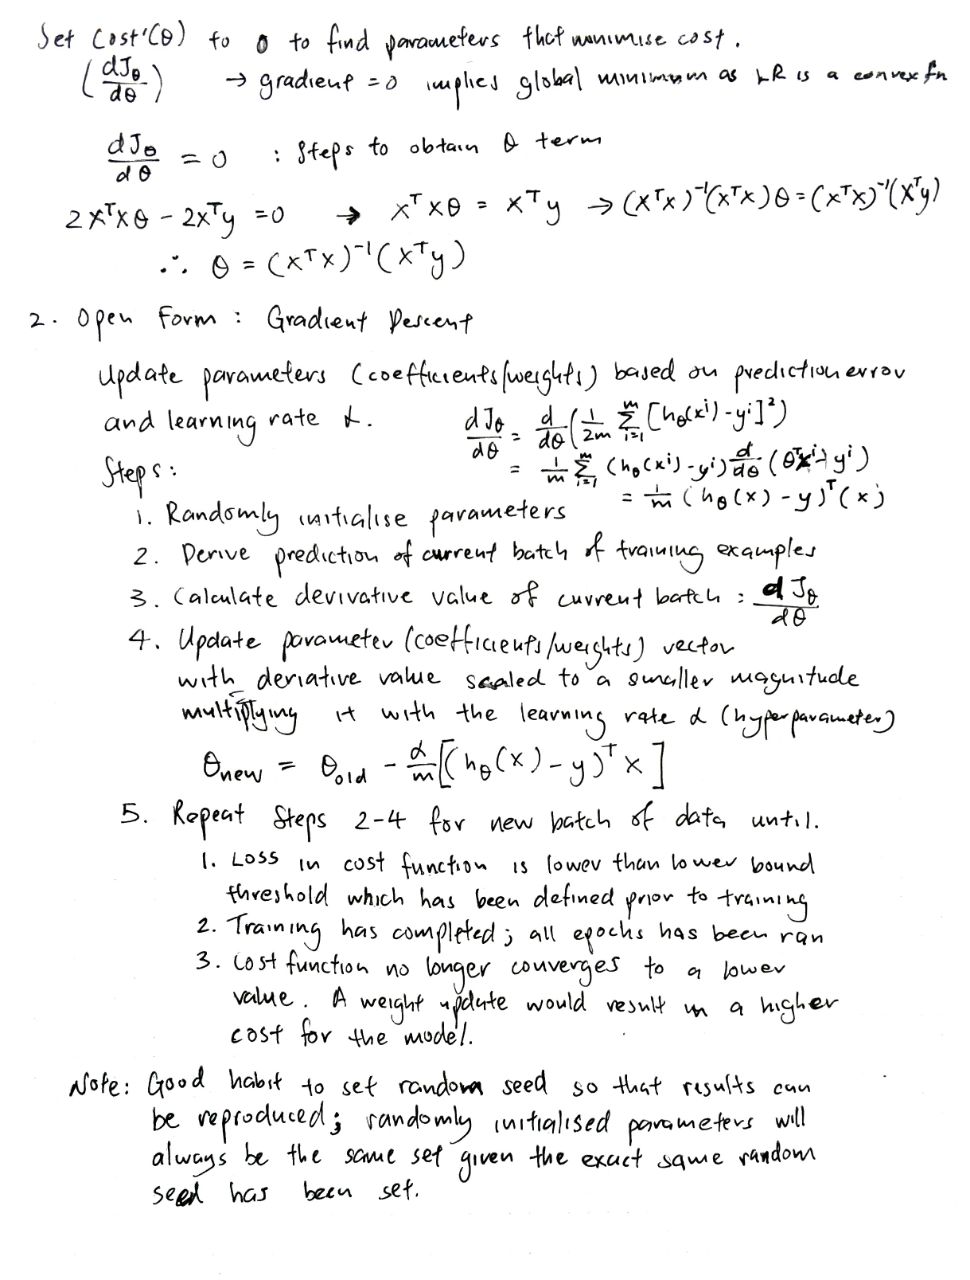 Set Cost'(θ) to 0 to find parameters that minimise cost.
(dJθ/dθ) → gradient = 0 implies global minimum as LR is a convex fn
dJθ/dθ = 0 : Steps to obtain θ term
2XᵀXθ - 2Xᵀy = 0 → XᵀXθ = Xᵀy → (XᵀX)⁻¹(XᵀX)θ = (XᵀX)⁻¹(Xᵀy)
∴ θ = (XᵀX)⁻¹(Xᵀy)
2. Open Form : Gradient Descent
Update parameters (coefficients/weights) based on prediction error
and learning rate α. dJθ/dθ = d/dθ (1/2m Σᵢ₌₁ᵐ [hθ(xⁱ) - yⁱ]²)
Steps: = 1/m Σᵢ₌₁ᵐ (hθ(xⁱ) - yⁱ) d/dθ (θᵀxⁱ - yⁱ)
= 1/m (hθ(x) - y)ᵀ(x)
1. Randomly initialise parameters
2. Derive prediction of current batch of training examples
3. Calculate derivative value of current batch : dJθ/dθ
4. Update parameter (coefficients/weights) vector
with deriative value scaled to a smaller magnitude
multiplying it with the learning rate α (hyperparameter)
θnew = θold - α/m [(hθ(x) - y)ᵀ x]
5. Repeat Steps 2-4 for new batch of data until.
1. Loss in cost function is lower than lower bound
threshold which has been defined prior to training
2. Training has completed; all epochs has been ran
3. Cost function no longer converges to a lower
value. A weight update would result in a higher
cost for the model.
Note: Good habit to set random seed so that results can
be reproduced; randomly initialised parameters will
always be the same set given the exact same random
seed has been set.